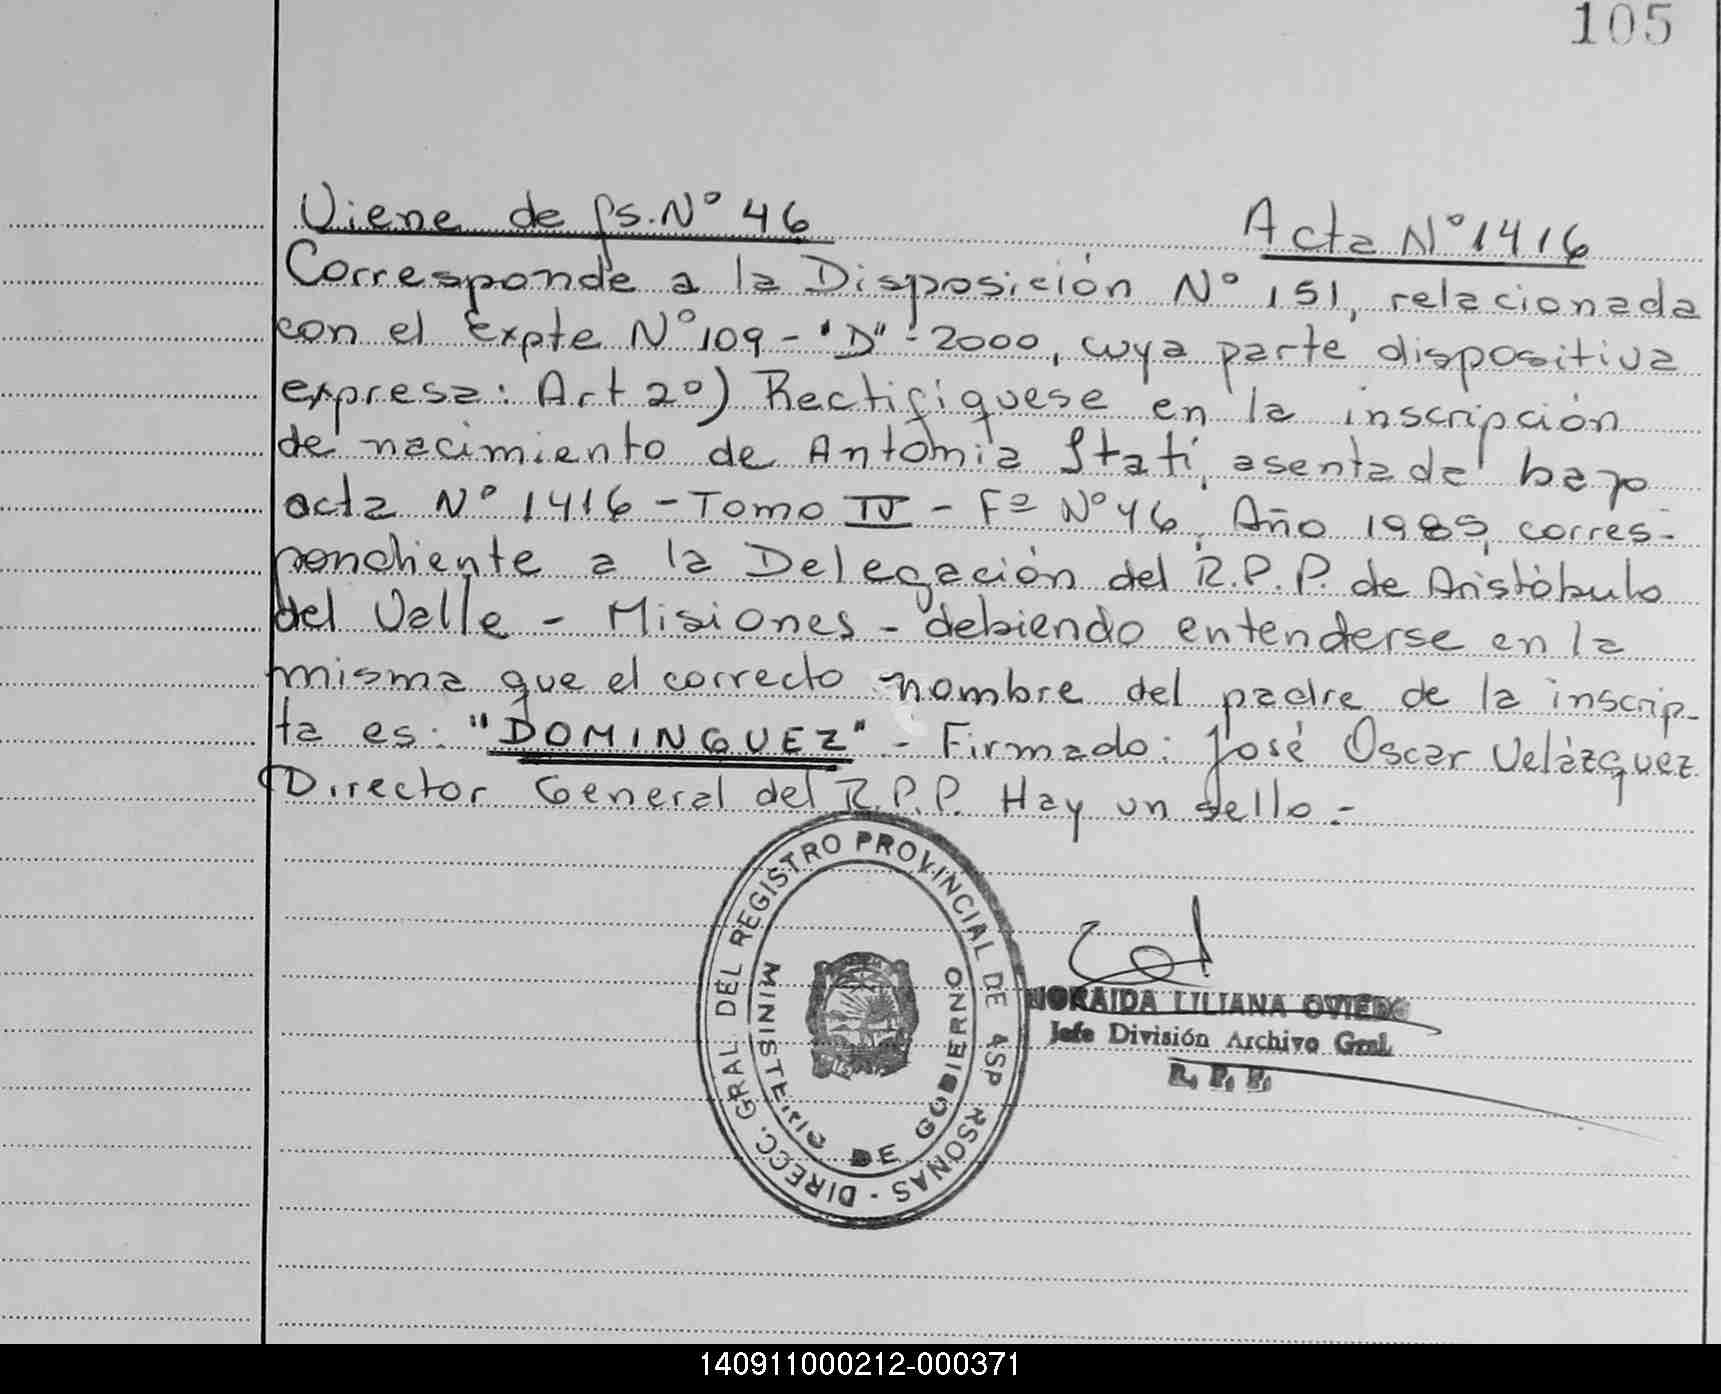 105
Viene de fs. Nº 46
Acta Nº 1416
Corresponde a la Disposición Nº 151, relacionada
con el Expte Nº 109 - "D" - 2000, cuya parte dispositiva
expresa: Art 2º) Rectifíquese en la inscripción
de nacimiento de Antonia Stati, asentada bajo
acta Nº 1416 - Tomo IV - Fº Nº 46, Año 1985, corres-
pondiente a la Delegación del R.P.P. de Aristóbulo
del Valle - Misiones - debiendo entenderse en la
misma que el correcto nombre del padre de la inscrip-
ta es: "DOMINGUEZ" - Firmado: José Oscar Velázquez
Director General del R.P.P. Hay un sello.-
DIRECC. GRAL DEL REGISTRO PROVINCIAL DE RSONAS -
MINISTERIO DE GOBIERNO
NORAIDA LILIANA OVIEDO
Jefe División Archivo Gral.
R. P. P.
140911000212-000371